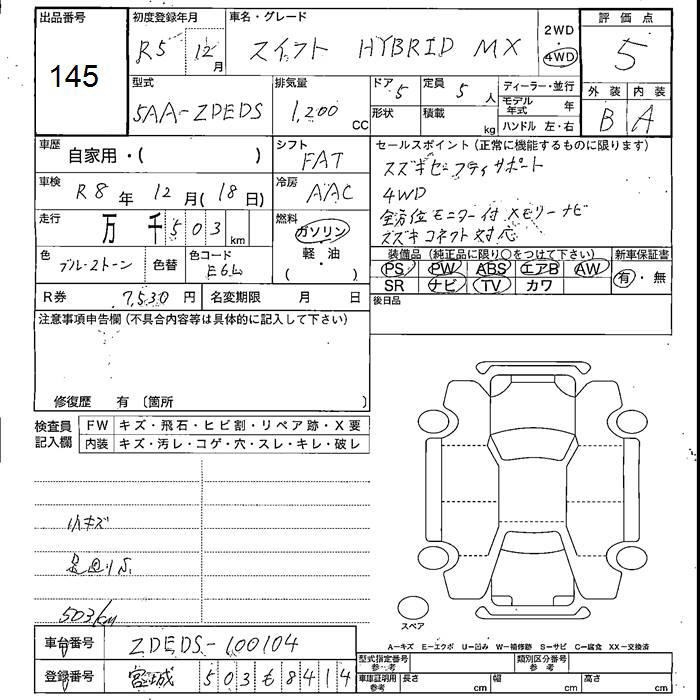 出品番号
145
初度登録年月
R5 12月
車名・グレード
スイフト HYBRID MX
2WD
・
4WD
評価点
5
型式
5AA-ZDEDS
排気量
1,200 cc
ドア 5
定員 5 人
形状
積載 kg
ディーラー・並行
モデル年式 年
ハンドル 左・右
外装 内装
B A
車歴 自家用・( )
シフト
FAT
セールスポイント (正常に機能するものに限ります)
スズキセーフティサポート
4WD
全方位モニター付メモリーナビ
スズキコネクト対応
車検 R8年 12月(18日)
冷房
AAC
走行 万 千 503 km
燃料
ガソリン
軽・油
( )
色
ブルー2トーン
色替
色コード
装備品 (純正品に限り○をつけて下さい)
PS PW ABS エアB AW
SR ナビ TV カワ
新車保証書
有・無
R券 7,530円
名変期限 月 日
後日品
注意事項申告欄 (不具合内容等は具体的に記入して下さい)
修復歴 有 〔箇所 〕
検査員記入欄
FW キズ・飛石・ヒビ割・リペア跡・X要
内装 キズ・汚レ・コゲ・穴・スレ・キレ・破レ
小キズ
503km
スペア
A-キズ E-エクボ U-凹み W-補修跡 S-サビ C-腐食 XX-交換済
車台番号 ZDEDS-100104
登録番号 宮城 503 も 8414
型式指定番号参考
類別区分番号参考
車庫証明用参考 長さ cm 幅 cm 高さ cm